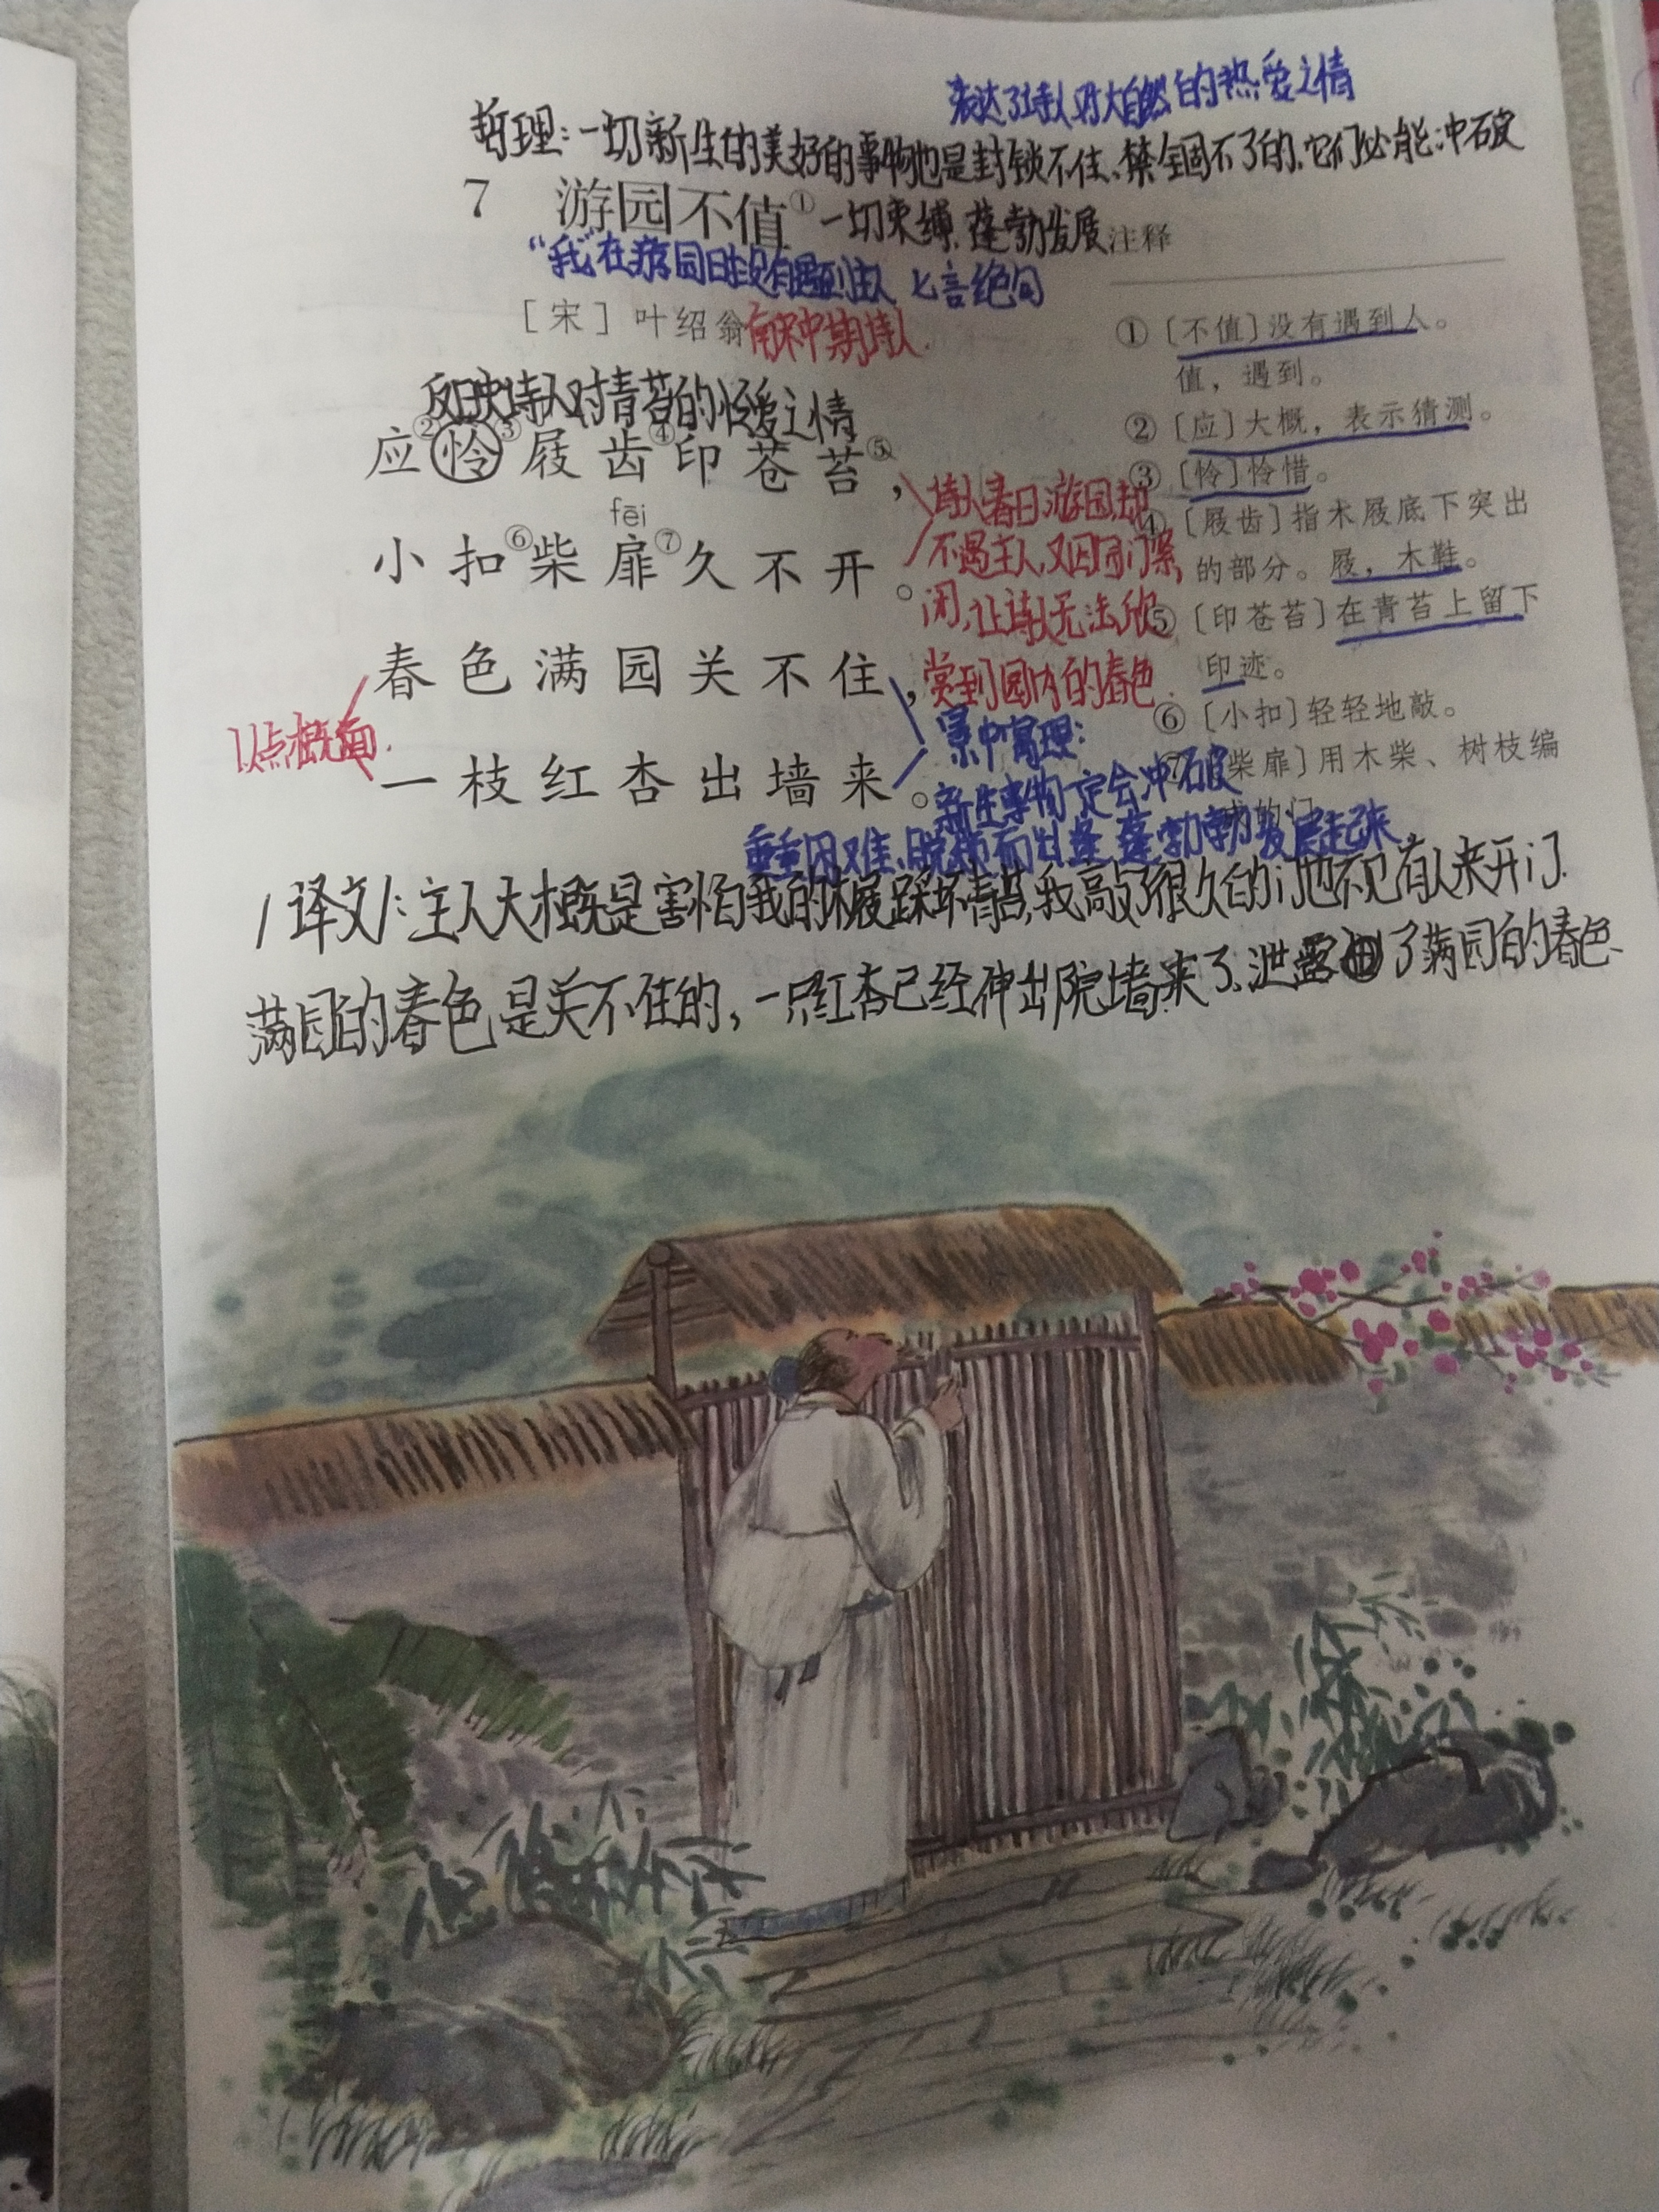 表达了诗人对大自然的热爱之情
哲理:一切新生的美好的事物也是封锁不住、禁锢不了的,它们必能冲破
7 游园不值① 一切束缚,蓬勃发展
“我”在游园时没有遇到主人 七言绝句
[宋]叶绍翁 南宋中期诗人.
反映诗人对青苔的怜爱之情
应②怜③屐齿④印苍苔⑤,
fēi
小扣⑥柴扉⑦久不开。
春色满园关不住,
一枝红杏出墙来。
以点概面.
诗人春日游园,却
不遇主人,又因园门紧
闭,让诗人无法欣
赏到园内的春色.
景中寓理:
新生事物定会冲破
重重困难,脱颖而出,蓬蓬勃勃发展起来
注释
①[不值]没有遇到人。
值,遇到。
②[应]大概,表示猜测。
③[怜]怜惜。
④[屐齿]指木屐底下突出
的部分。屐,木鞋。
⑤[印苍苔]在青苔上留下
印迹。
⑥[小扣]轻轻地敲。
⑦[柴扉]用木柴、树枝编
成的门。
/译文/:主人大概是害怕我的木屐踩坏青苔,我敲了很久的门也不见有人来开门.
满园的春色是关不住的,一只红杏已经伸出院墙来了,泄露了满园的春色、